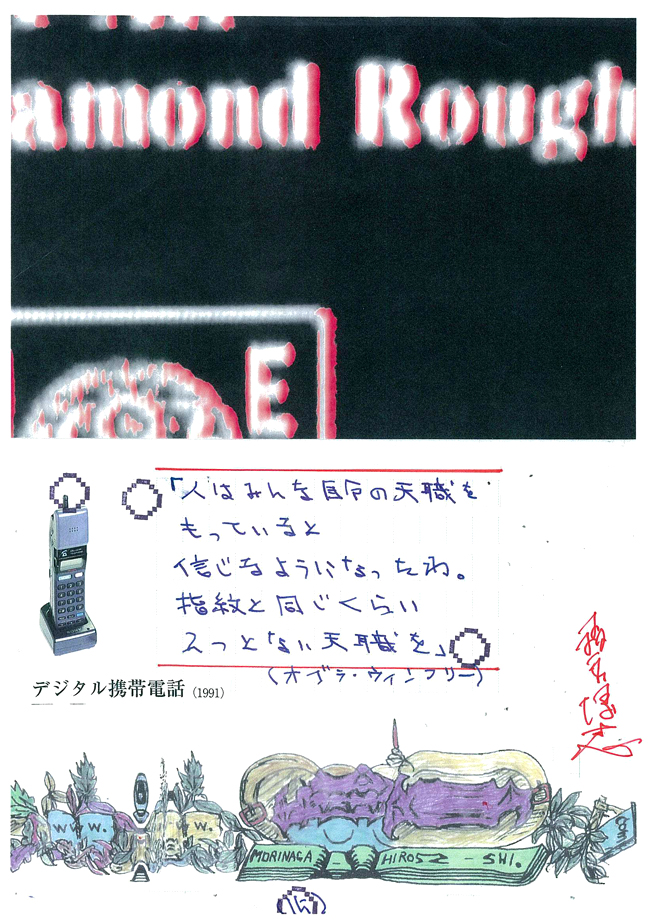 amond Rough
E
「人はみんな自分の天職を
もっていると
信じるようになったわ。
指紋と同じくらい
2つとない天職を」
(オプラ・ウィンフリー)
デジタル携帯電話 (1991)
WWW.
W.
.com
MORINAGA - HIROSZ - SHI.